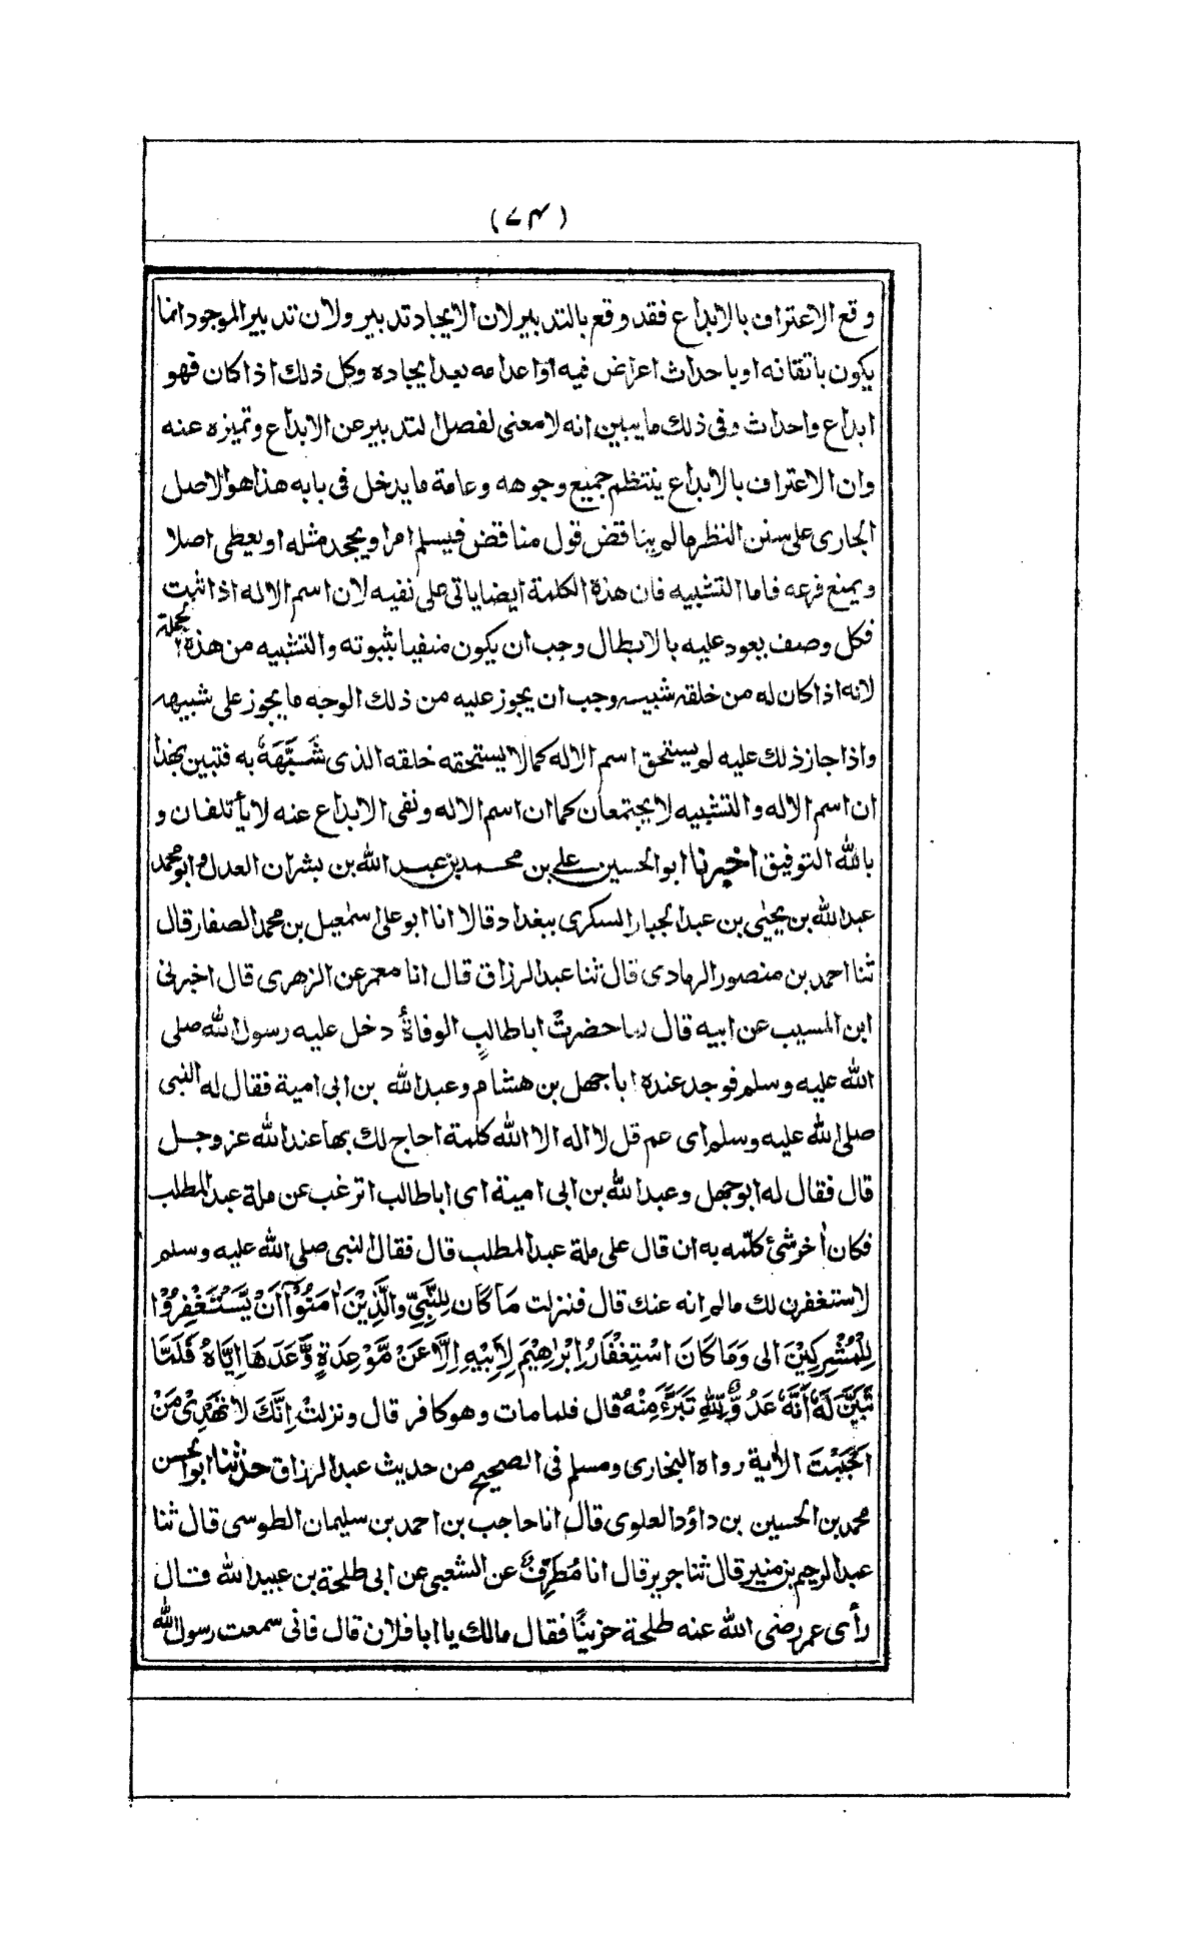 (۷۴)
وقع الاعتراف بالابداع فقد وقع بالتدبير لان الايجاد تدبير ولان تدبير الموجود انما
يكون باتقانه او باحداث اعراض فيه او اعدامه بعد ايجاده وكل ذلك اذا كان فهو
ابداع واحداث وفى ذلك ما يبين انه لا معنى لفصل التدبير عن الابداع وتميزه عنه
وان الاعتراف بالابداع ينتظم جميع وجوهه وعامة ما يدخل فى بابه هذا هو الاصل
الجارى على سنن النظر ما لم يناقض قول مناقض فيسلم امرا ويجحد مثله او يعطى اصلا
ويمنع فرعه فاما التشبيه فان هذه الكلمة ايضا ياتى على نفيه لان اسم الاله اذا ثبت
فكل وصف يعود عليه بالابطال وجب ان يكون منفيا بثبوته والتشبيه من هذه الجملة
لانه اذا كان له من خلقه شبيه وجب ان يجوز عليه من ذلك الوجه ما يجوز على شبيهه
واذا جاز ذلك عليه لم يستحق اسم الاله كما لا يستحقه خلقه الذى شَبَّهَهُ به فتبين بهذا
ان اسم الاله والتشبيه لا يجتمعان كما ان اسم الاله ونفى الابداع عنه لا يأتلفان و
بالله التوفيق اخبرنا ابو الحسين على بن محمد بن عبد الله بن بشران العدل وابو محمد
عبد الله بن يحيٰى بن عبد الجبار السكرى ببغداد قالا انا ابو على اسمٰعيل بن محمد الصفار قال
ثنا احمد بن منصور الرمادى قال ثنا عبد الرزاق قال انا معمر عن الزهرى قال اخبرنى
ابن المسيب عن ابيه قال لما حضرتْ ابا طالبٍ الوفاةُ دخل عليه رسول الله صلى
الله عليه وسلم فوجد عنده ابا جهل بن هشام وعبد الله بن ابى امية فقال له النبى
صلى الله عليه وسلم اى عم قل لا اله الا الله كلمة احاج لك بها عند الله عز وجل
قال فقال له ابو جهل وعبد الله بن ابى امية اى ابا طالب اترغب عن ملة عبد المطلب
فكان اٰخر شئ كلّمه به ان قال على ملة عبد المطلب قال فقال النبى صلى الله عليه وسلم
لاستغفرن لك ما لم انه عنك قال فنزلت مَا كَانَ لِلنَّبِيِّ وَالَّذِيْنَ اٰمَنُوْۤا اَنْ يَّسْتَغْفِرُوْا
لِلْمُشْرِكِيْنَ الى وَمَا كَانَ اسْتِغْفَارُ اِبْرٰهِيْمَ لِاَبِيْهِ اِلَّا عَنْ مَّوْعِدَةٍ وَّعَدَهَا اِيَّاهُ فَلَمَّا
تَبَيَّنَ لَهٗ اَنَّهٗ عَدُوٌّ لِلّٰهِ تَبَرَّاَ مِنْهُ قال فلما مات وهو كافر قال ونزلتْ اِنَّكَ لَا تَهْدِىْ مَنْ
اَحْبَبْتَ الاٰية رواه البخارى ومسلم فى الصحيح من حديث عبد الرزاق حدثنا ابو الحسن
محمد بن الحسين بن داؤد العلوى قال انا حاجب بن احمد بن سليمان الطوسى قال ثنا
عبد الرحيم بن منير قال ثنا جرير قال انا مُطَرِّفٌ عن الشعبى عن ابى طلحة بن عبيد الله قال
رأى عمر رضى الله عنه طلحة حزينًا فقال مالك يا ابا فلان قال فانى سمعت رسول الله